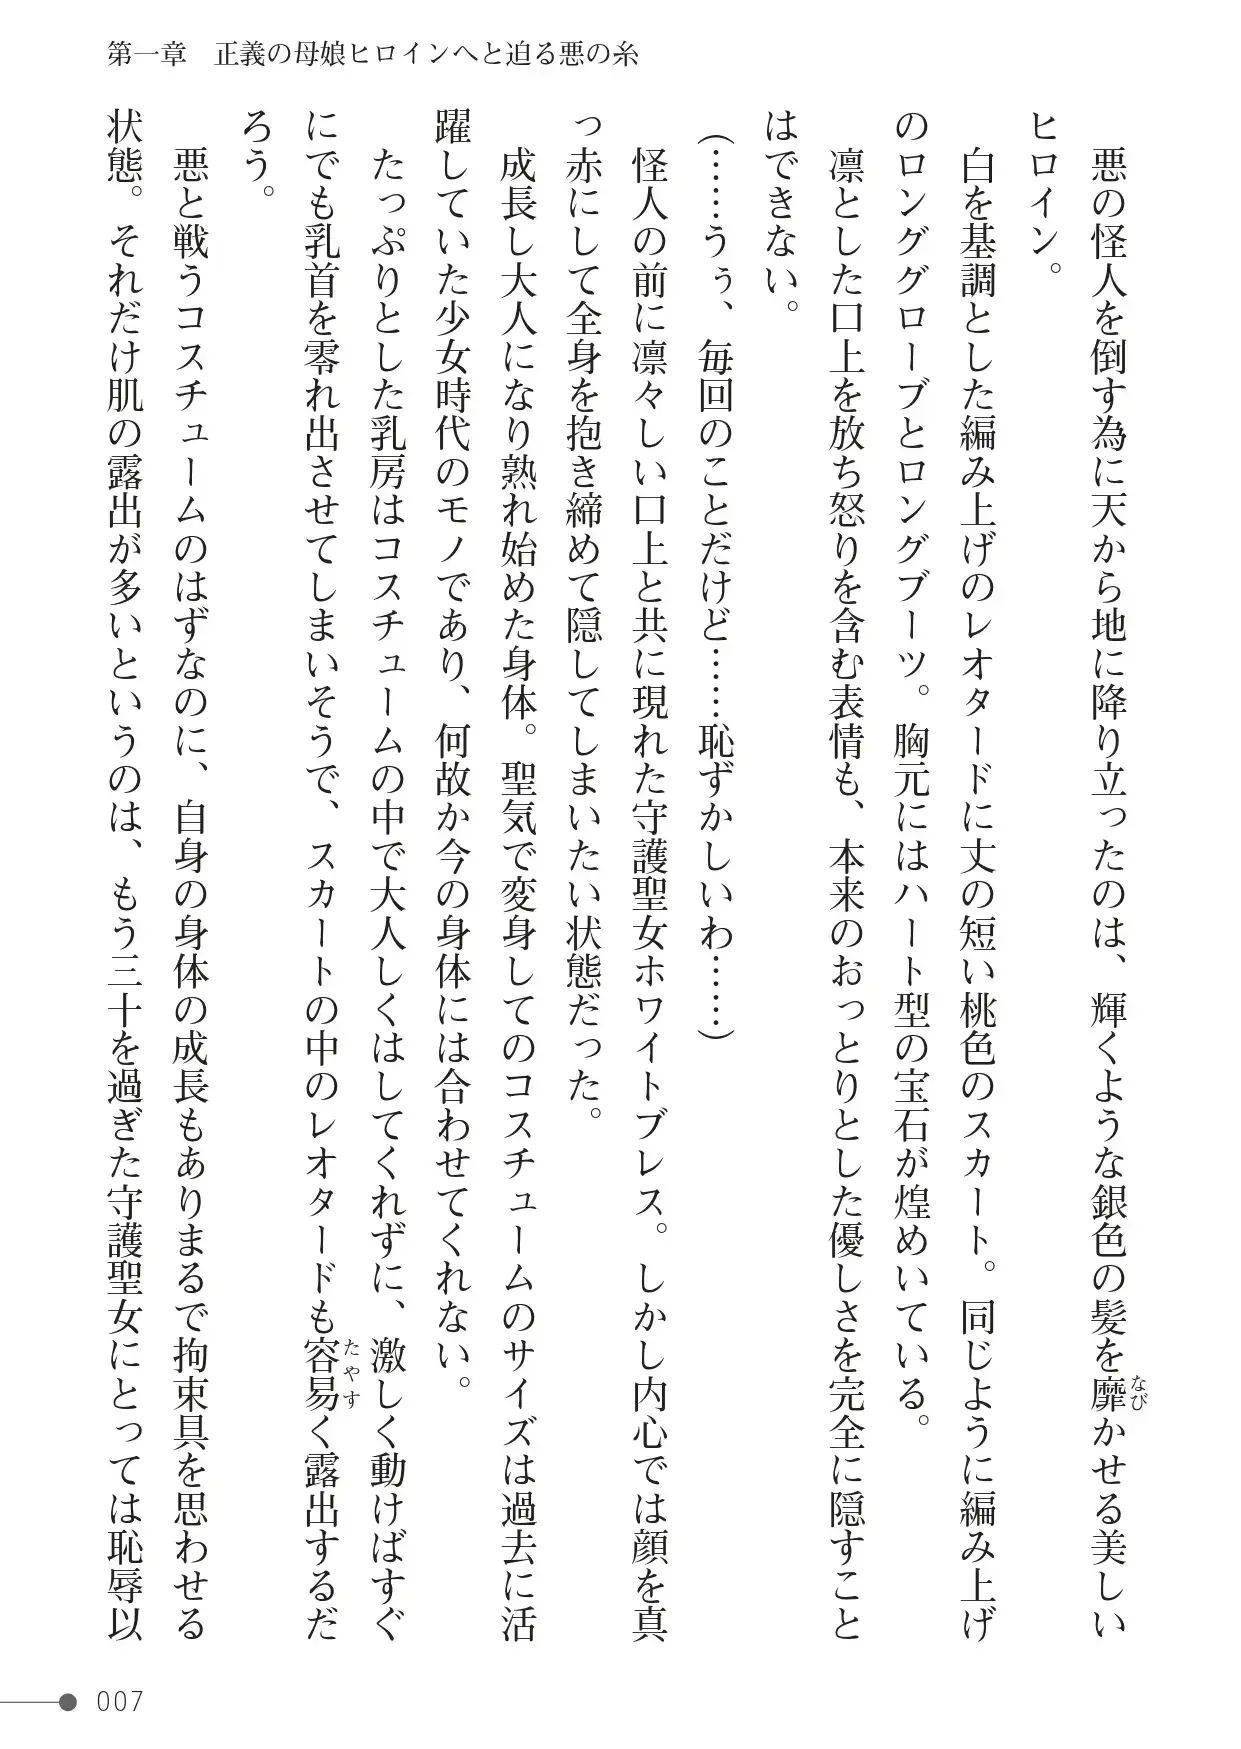 第一章　正義の母娘ヒロインへと迫る悪の糸
　悪の怪人を倒す為に天から地に降り立ったのは、輝くような銀色の髪を靡かせる美しい
なび
ヒロイン。
　白を基調とした編み上げのレオタードに丈の短い桃色のスカート。同じように編み上げ
のロンググローブとロングブーツ。胸元にはハート型の宝石が煌めいている。
　凛とした口上を放ち怒りを含む表情も、本来のおっとりとした優しさを完全に隠すこと
はできない。
（……うぅ、毎回のことだけど……恥ずかしいわ……）
　怪人の前に凛々しい口上と共に現れた守護聖女ホワイトブレス。しかし内心では顔を真
っ赤にして全身を抱き締めて隠してしまいたい状態だった。
　成長し大人になり熟れ始めた身体。聖気で変身してのコスチュームのサイズは過去に活
躍していた少女時代のモノであり、何故か今の身体には合わせてくれない。
　たっぷりとした乳房はコスチュームの中で大人しくはしてくれずに、激しく動けばすぐ
にでも乳首を零れ出させてしまいそうで、スカートの中のレオタードも容易く露出するだ
たやす
ろう。
　悪と戦うコスチュームのはずなのに、自身の身体の成長もありまるで拘束具を思わせる
状態。それだけ肌の露出が多いというのは、もう三十を過ぎた守護聖女にとっては恥辱以
007